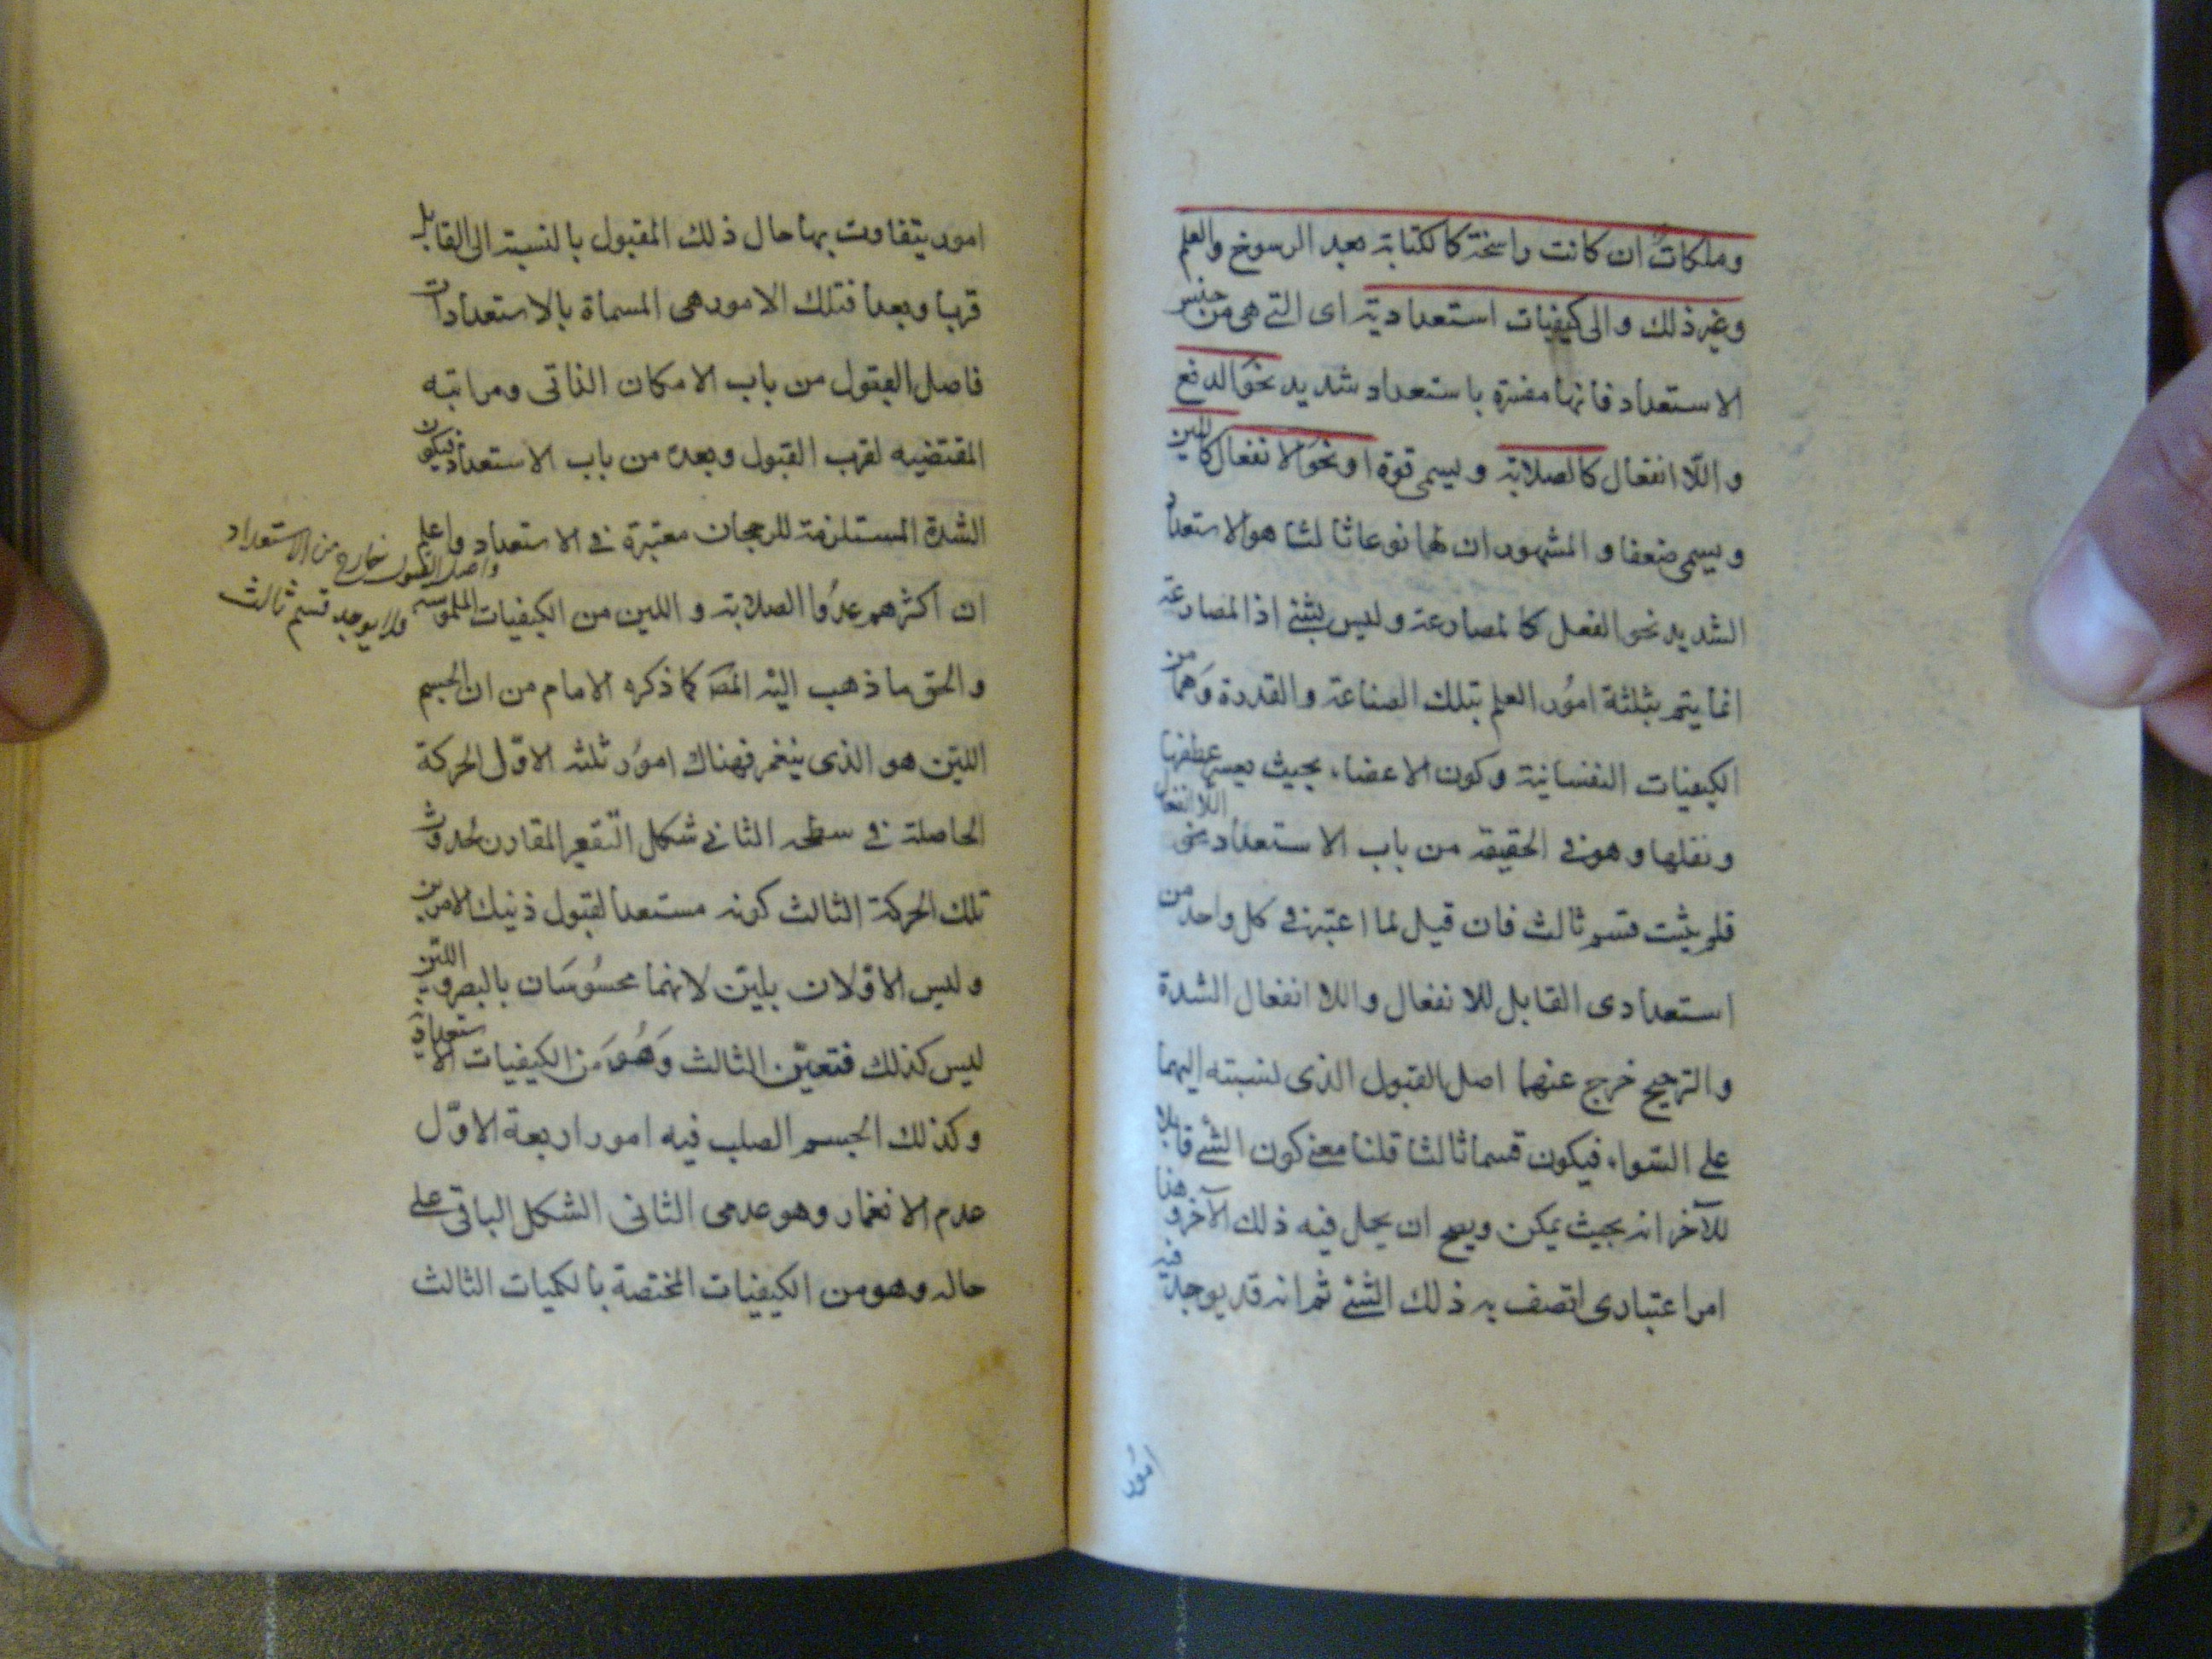 وملكات ان كانت راسخة كالكتابة بعد الرسوخ والعلم
وغير ذلك والى كيفيات استعدادية اى التى هى من جنس
الاستعداد فانها مفسرة باستعداد شديد نحو الدفع
واللّا انفعال كالصلابة ويسمى قوة او نحو الانفعال كاللين
ويسمى ضعفا والمشهور ان لها نوعا ثالثا هو الاستعداد
الشديد نحو الفعل كالمصارعة وليس بشئ اذ المصارعة
انما يتم بثلثة امور العلم بتلك الصناعة والقدرة وهما من
الكيفيات النفسانية وكون الاعضاء بحيث يعسر عطفها
ونقلها وهو فى الحقيقة من باب الاستعداد نحو اللّا انفعال
فلم يثبت قسم ثالث فان قيل لما اعتبر فى كل واحد من
استعدادى القابل للانفعال واللا انفعال الشدة
والترجيح خرج عنهما اصل القبول الذى لنسبته اليهما
على السّواء فيكون قسما ثالثا قلنا معنى كون الشئ قابلا
للآخر انه بحيث يمكن ويصح ان يحل فيه ذلك الآخر وهذا
امر اعتبارى اتصف به ذلك الشئ ثم انه قد يوجد فيه
امور
امور يتفاوت بها حال ذلك المقبول بالنسبة الى القابل
قربا وبعدا فتلك الامور هى المسماة بالاستعدادات
فاصل القبول من باب الامكان الذاتى ومراتبه
المقتضيه لقرب القبول وبعده من باب الاستعداد فيكون
الشدة المستلزمة للرجحان معتبرة فى الاستعداد واعلم
واصل القبول خارج من الاستعداد
ولا يوجد قسم ثالث
ان اكثرهم عدُّوا الصلابة واللين من الكيفيات الملموسه
والحق ما ذهب اليه المص كما ذكره الامام من ان الجسم
الليّن هو الذى ينغمر فهناك امور ثلثه الاوّل الحركة
الحاصلة فى سطحه الثانى شكل التّقعير المقارن لحدوث
تلك الحركة الثالث كونه مستعدا لقبول ذينك الامرين
وليس الاوّلان بلين لانهما محسُوسَان بالبصر واللين
ليس كذلك فتعيّن الثالث وَهُوَ من الكيفيات الاستعدادية
وكذلك الجسم الصلب فيه امور اربعة الاوّل
عدم الانغمار وهو عدمى الثانى الشكل الباقى على
حاله وهو من الكيفيات المختصة بالكميات الثالث